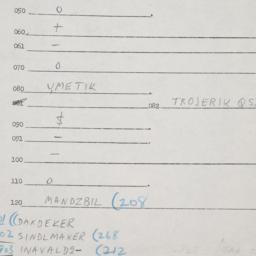 050 0
060 +
061 -
070 0
080 YMETIK
082 TROJERIK
090 $
091 -
100 -
110 0
120 MANDZBIL (208
((DAKDEKER
02 SINDLMAXER (268
703 INAVALD2- (212